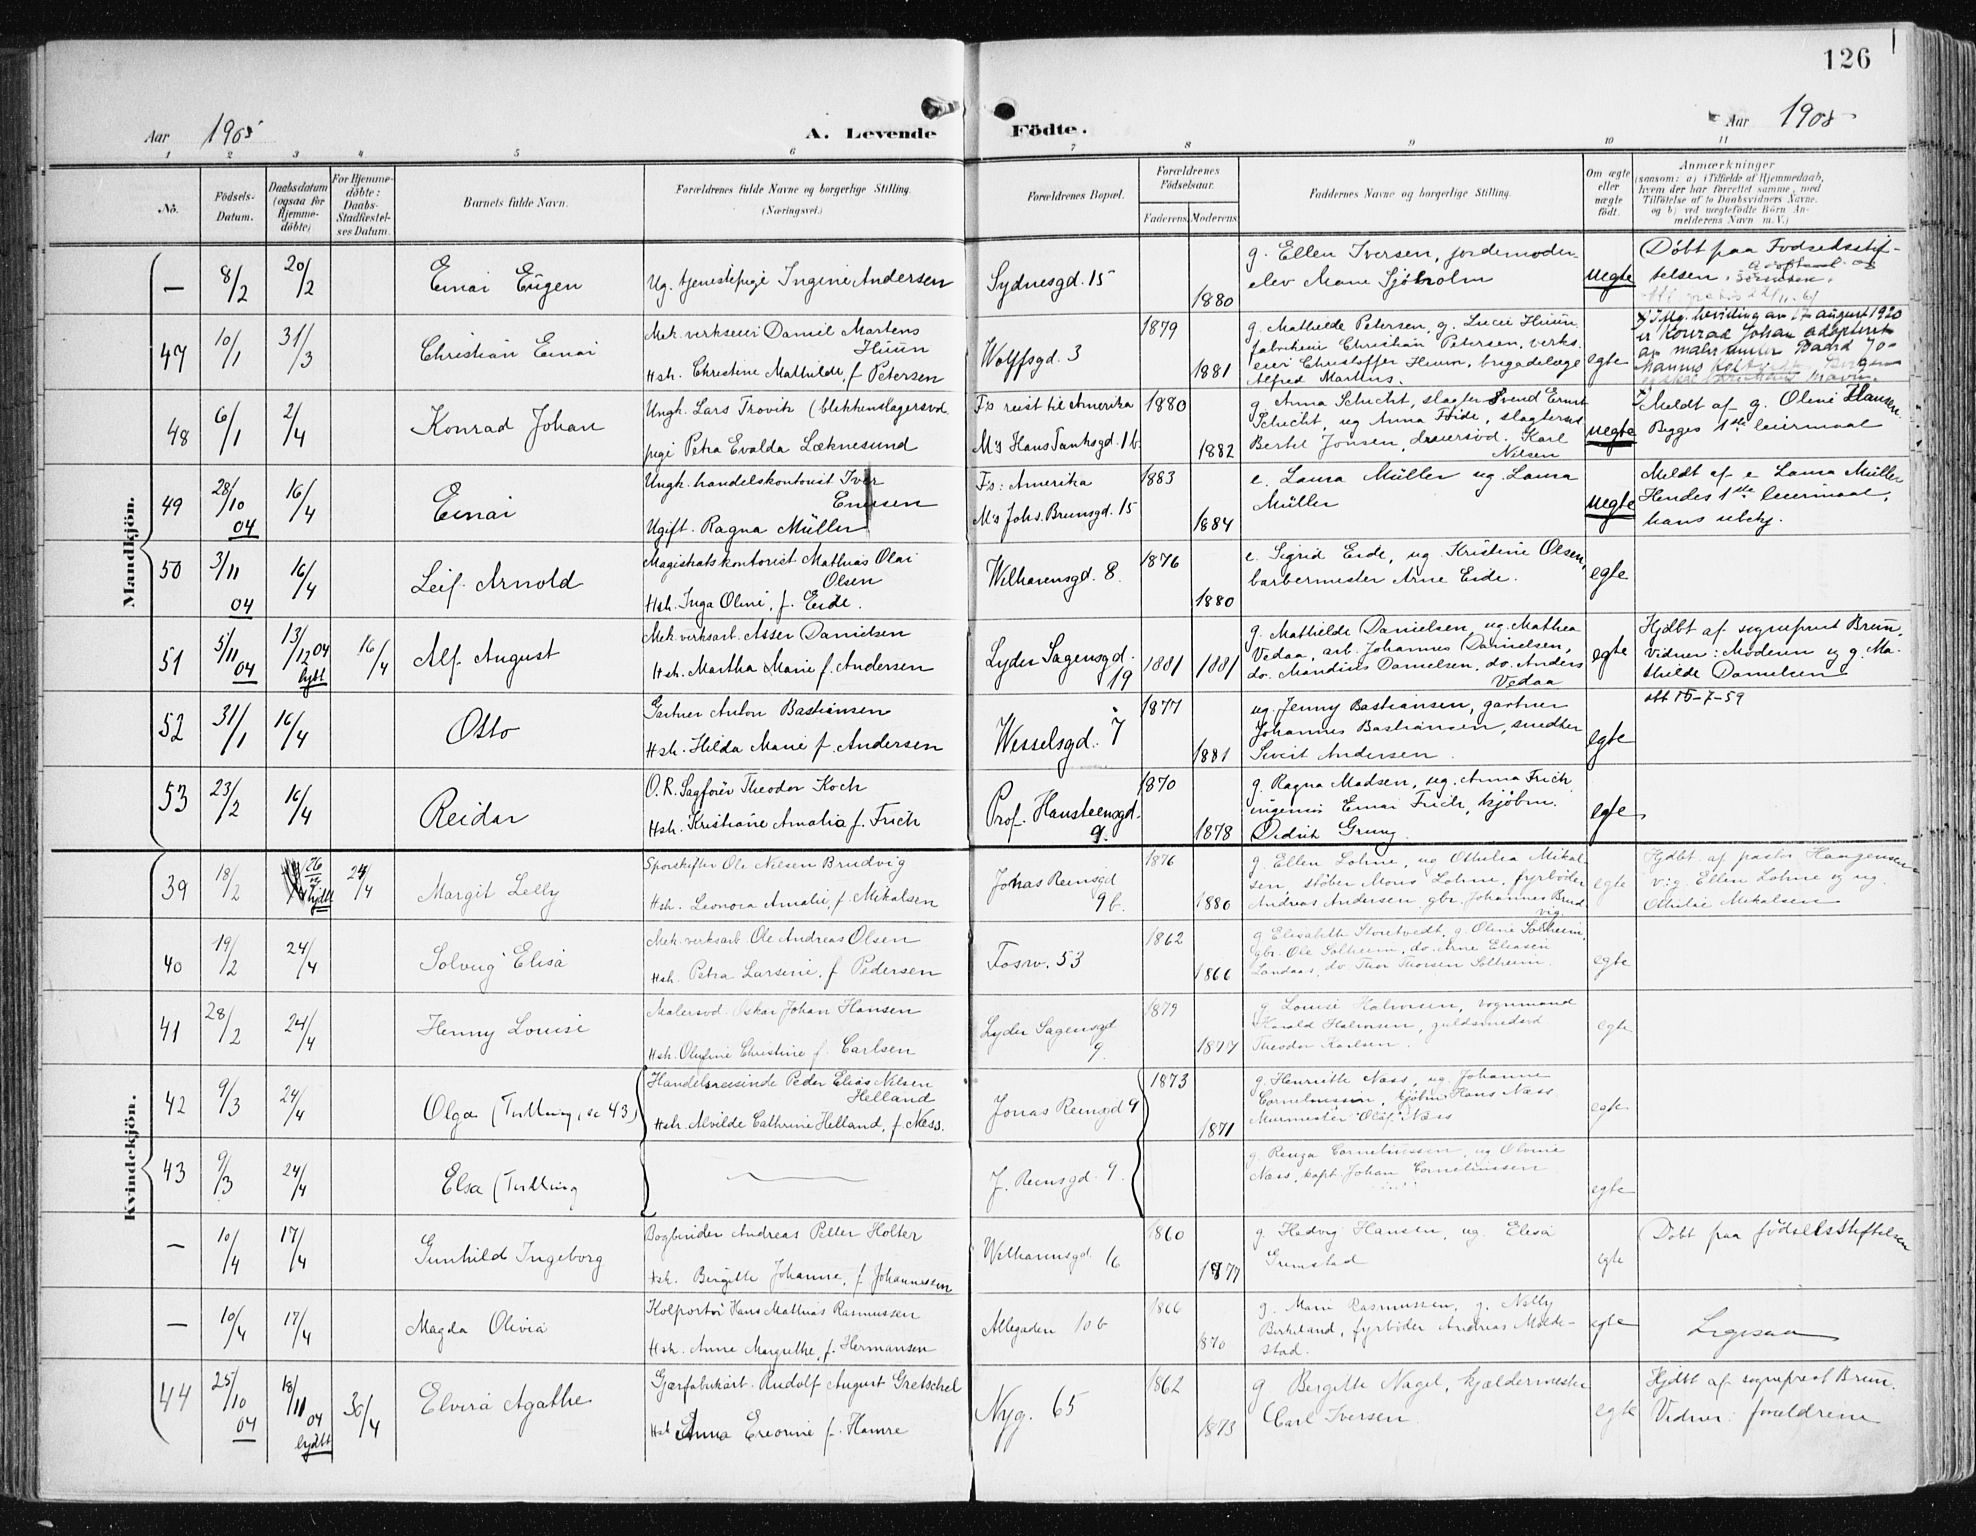 126
Aar 1905
A. Levende Födte.
Aar 1905
1 2 3 4 5 6 7 8 9 10 11
No.
Födsels-Datum.
Daabsdatum (ogsaa for Hjemmedöbte)
For Hjemmedöbte: Daabs-Stadfæstelses Datum.
Barnets fulde Navn.
Forældrenes fulde Navne og borgerlige Stilling.
(Næringsvei.)
Forældrenes Bopæl.
Forældrenes Födselsaar.
Faderens Moderens
Faddernes Navne og borgerlige Stilling.
Om ægte eller uægte födt.
Anmærkninger
(saasom: a) i Tilfælde af Hjemmedaab, hvem der har forrettet samme, med Tilföielse af to Daabsvidners Navne, og b) ved uægtefödte Börn Anmelderens Navn m. V.)
Mandkjön.
— 8/2 20/2 Einar Eugen
Ug. tjenestepige Ingine Andersen
Sydnesgd. 15
1880
g. Ellen Iversen, jordemoder-
elev Marie Sjöholm
uegte
Döbt paa Fødselsstif-
telsen.
47 10/1 31/3 Christian Einar
Mek. verkseier Daniel Martens
Huun
Hstr. Christine Mathilde, f. Petersen
Wolffsgd. 3
1879
1881
g. Mathilde Petersen, g. Lucie Huun,
fabrikeier Christian Petersen, verks-
eier Christoffer Huun, brigadelæge
Alfred Martens.
egte
x) Iflg. bevilling av 17 august 1920
er Konrad Johan adopteret
av
48 6/1 2/4 Konrad Johan
Ungk. Lars Trovik (blikkenslagersvd.
pige Petra Evalda Læknesund
F's reist til Amerika
M's Hans Tanksgd. 1b
1880
1882
g. Anna Schicht, slagter Svend Ernst
Schicht, ug Anna Eide, slagtersvd
Bertel Jonsen, svd. Karl
Nilsen
uegte
x) Meldt af g. Oline Hansen.
Begges 1ste leiermaal
49 28/10 04 16/4 Einar
Ungk. handelskontorist Iver
Ensen
Ugift. Ragna Müller
F's: Amerika
M's Johs. Brunsgd. 15
1883
1884
e. Laura Müller ug. Laura
Müller
uegte
Meldt af e Laura Müller
Hendes 1ste leiermaal,
hans ubekj.
50 3/11 04 16/4 Leif Arnold
Magistratskontorist Mathias Olai
Olsen
Hstr. Inga Oline, f. Eide.
Welhavensgd. 8.
1876
1880
e. Sigrid Eide, ug Kristine Olsen,
barbermester Arne Eide.
egte
51 5/11 04 13/12 04 hjdt 16/4 Alf August
Mek. verksarb. Asser Danielsen
Hstr. Martha Marie f. Andersen
Lyder Sagensgd.
19
1881 1881
g. Mathilde Danielsen, ug. Mathea
Vedaa, arb. Johannes Danielsen,
do. Mandius Danielsen, do. Anders
Vedaa
egte
Hjdbt af sogneprest Brun.
Vidner: Moderen og g. Ma-
thilde Danielsen
52 31/1 16/4 Otto
Gartner Anton Bastiansen
Hstr. Hilda Marie f. Andersen
Wesselsgd. 7
1877
1881
ug. Jenny Bastiansen, gartner
Johannes Bastiansen, smed
Sivert Andersen
egte
att 15-7-59
53 23/2 16/4 Reidar
O.R. Sagförer Theodor Koch
Hstr. Kristiane Amalia f. Frich
Prof. Hansteensgd.
9.
1870
1878
g. Ragna Madsen, ug. Anna Frich
ingeniör Einar Frich, kjöbm.
Didrik Grung.
egte
Kvindekjön.
39 18/2 26 hjdt 24/4 Margit Lelly
Sporskifter Ole Nilsen Brudvig
Hstr. Leonora Amalie, f. Mikalsen
Jonas Reinsgd
9b.
1876
1880
g. Ellen Lohne, ug Othilia Mikal-
sen, støber Mons Lohne, fyrböder
Andreas Andersen, gbr. Johannes Brud-
vig.
egte
Hjdbt af pastor Haagensen
Vi: g. Ellen Lohne og ug.
Othilie Mikalsen
40 19/2 24/4 Solveig Elisa
Mek. verksarb. Ole Andreas Olsen
Hstr. Petra Larsine, f. Pedersen
Fosw. 53
1862
1866
g Elisabeth Storetvedt, g. Oline Solheim,
gbr. Ole Solheim, do. Arne Eliasen
Landaas, do. Thor Thorsen Solheim.
egte
41 28/2 24/4 Henny Louise
Malersvd. Oskar Johan Hansen
Hstr. Olufine Christine f. Carlsen
Lyder Sagensgd
9.
1879
1877
g Louise Halvorsen, vognmand
Harald Halvorsen, guldsmedsvd
Theodor Karlsen.
egte
42 9/3 24/4 Olga (Tvilling, se 43)
Handelsreisende Peder Elias Nilsen
Helland
Hstr. Alvilde Cathrine Helland, f. Næss.
Jonas Reinsgd 9
1873
1871
g. Henriette Næss, ug. Johanne
Corneliussen, kjöbm Hans Næss
Murmester Olaf Næss
egte
43 9/3 24/4 Elsa (Tvilling
J. Reinsgd. 9.
g. Renza Corneliussen, ug Olvine
Næss, kapt. Johan Corneliussen
egte
— 10/4 17/4 Gunhild Ingeborg
Bogbinder Andreas Petter Holter
Hstr. Bergitte Johanne, f. Johannessen
Welhavensgd. 16
1860
1877
g. Hedvig Hansen, ug. Elesa
Grimstad
egte
Döbt paa födselsstiftelsen
— 10/4 17/4 Magda Olivia
Kolportör Hans Mathias Rasmussen
Hstr. Anne Margrethe, f. Hermansen
Allegaden 10b
1866
1870
g. Marie Rasmussen, g. Nelly
Birkeland, fyrböder Andreas Molde-
stad.
egte
Ligesaa
44 25/10 04 18/11 04 hjdt 30/4 Elvira Agathe
Gjærfabrikarb. Rudolf August Gretschel
Hst. Anna Ereorine f. Hamre
Nyg. 65
1862
1873
g Bergitte Nagel, kjældermester
Carl Iversen
egte
Hjdbt af sogneprest Brun.
Vidner: forældrene